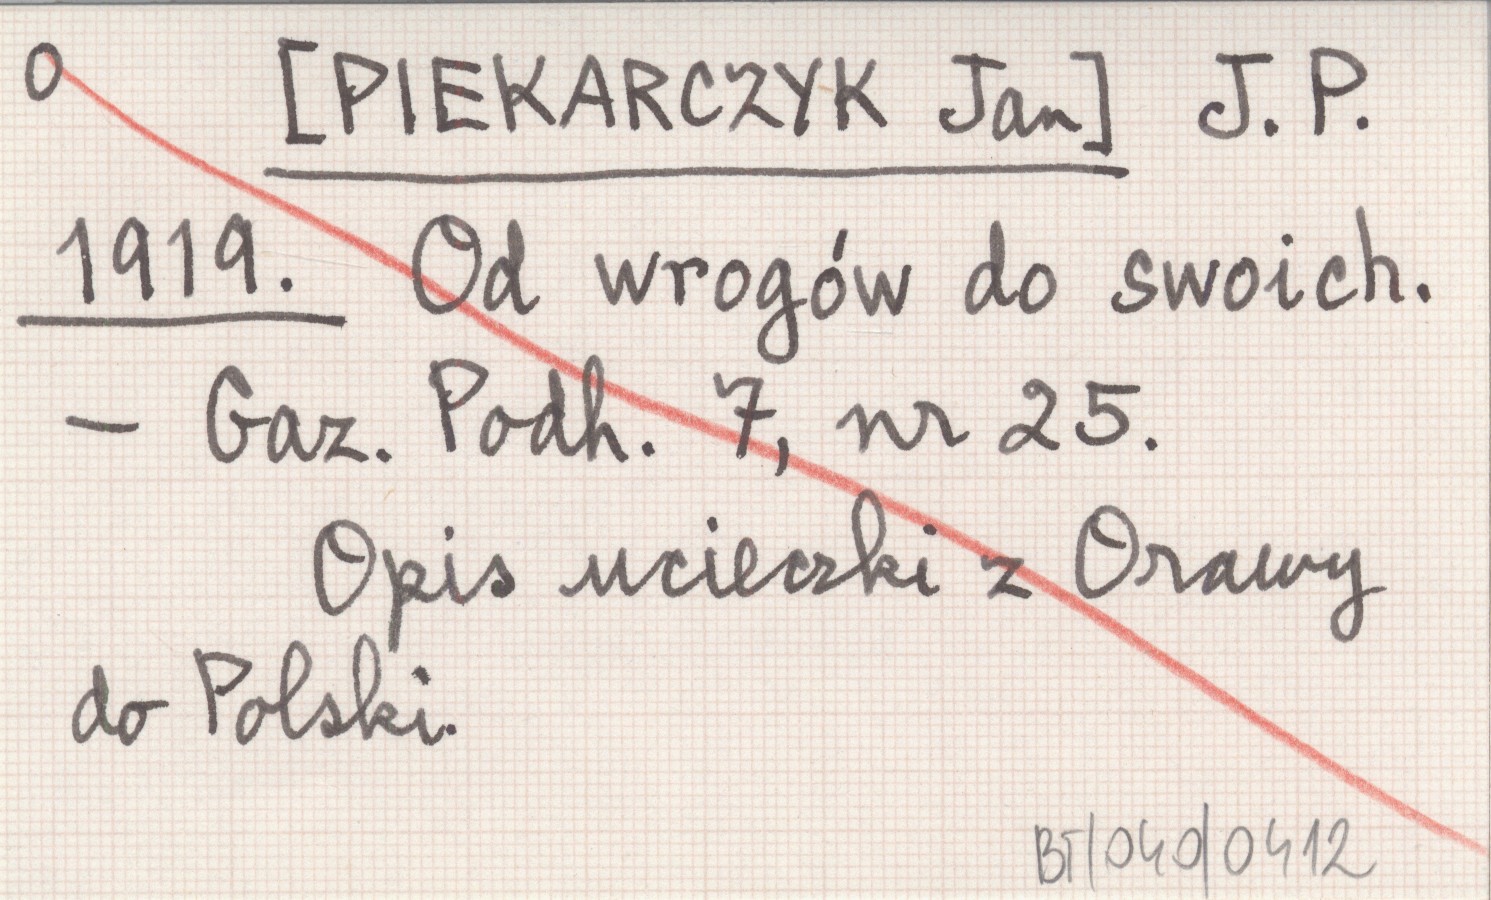 O [PIEKARCZYK Jan] J. P.
1919. Od wrogów do swoich.
– Gaz. Podh. 7, nr 25.
Opis ucieczki z Orawy
do Polski.
BT/040/0412